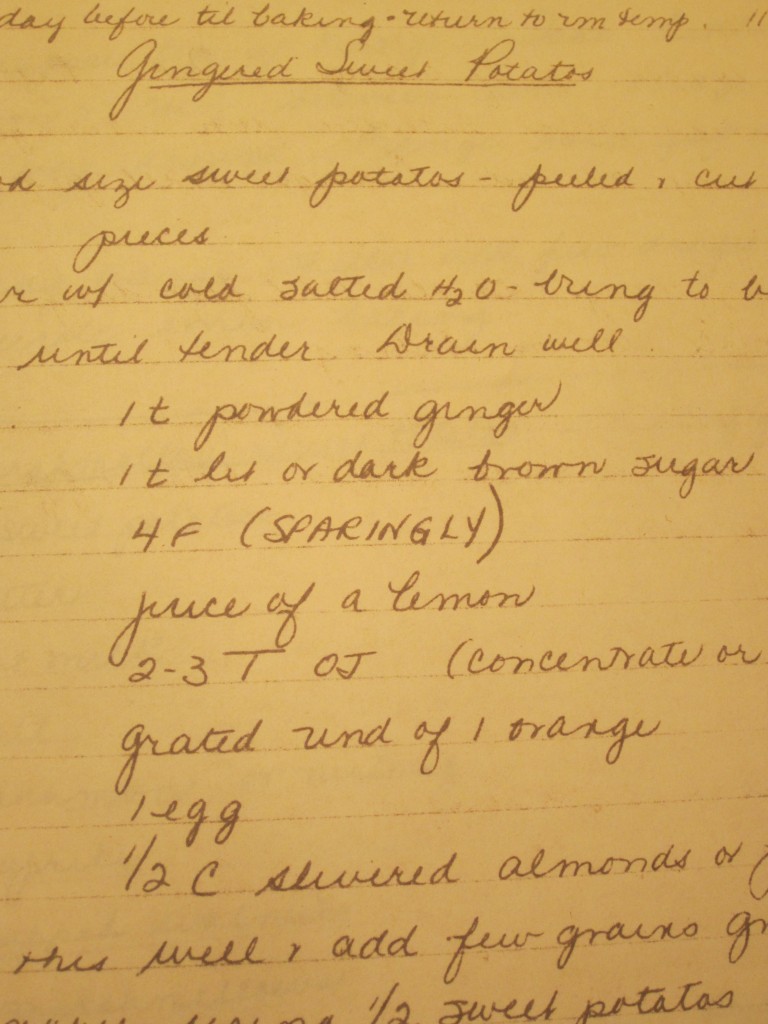 day before til baking - return to rm temp. 11
Gingered Sweet Potatos
size sweet potatos - peeled & cut
pieces
w/ cold salted H2O - bring to b
until tender. Drain well
1 t powdered ginger
1 t let or dark brown sugar
4 F (SPARINGLY)
juice of a lemon
2-3 T OJ (concentrate or
grated rind of 1 orange
1 egg
1/2 C slivered almonds or
this well & add few grains gr
1/2 sweet potatos